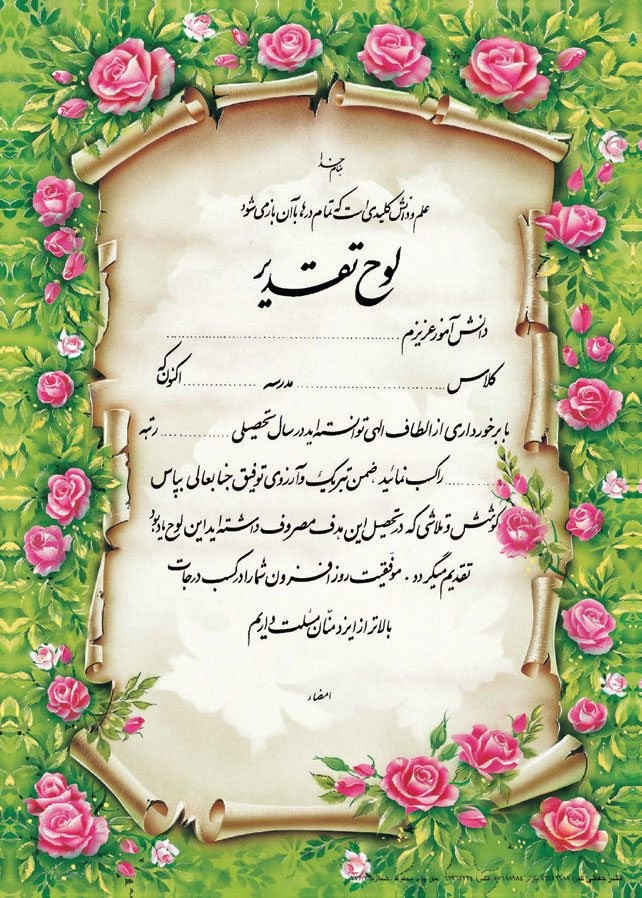 بنام خدا
علم و دانش کلیدی است که تمام درها با آن باز می شود
لوح تقدیر
دانش آموز عزیزم ........................
کلاس ............ مدرسه ............ اکنون که
با برخورداری از الطاف الهی توانسته اید در سال تحصیلی ............ رتبه
............ را کسب نمائید ضمن تبریک و آرزوی توفیق جنابعالی بپاس
کوشش و تلاشی که در تحصیل این هدف مصروف داشته اید این لوح یادبود
تقدیم میگردد. موفقیت روز افزون شما را در کسب درجات
بالاتر از ایزد منّان مسئلت داریم
امضاء
نشر حفظی